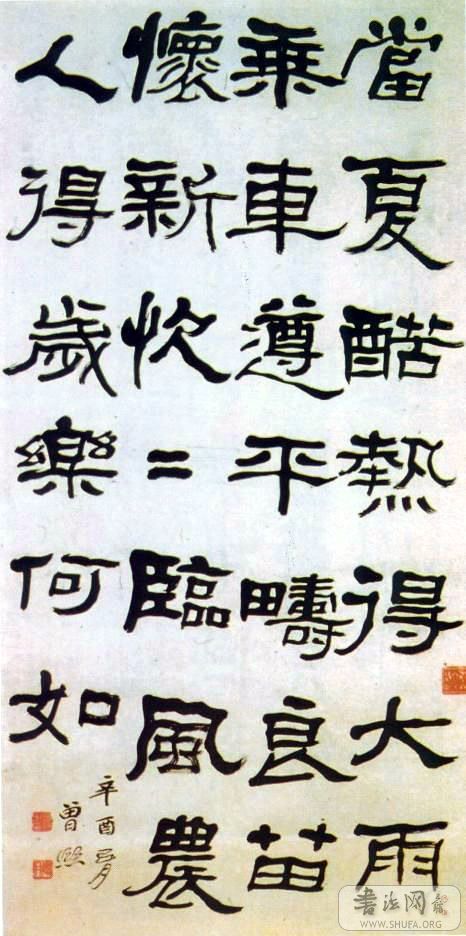 當夏酷熱得大雨
乘車遵平疇良苗
懷新忺=臨風農
人得歲樂何如
辛酉
曾熙
書法网
WWW.SHUFA.ORG